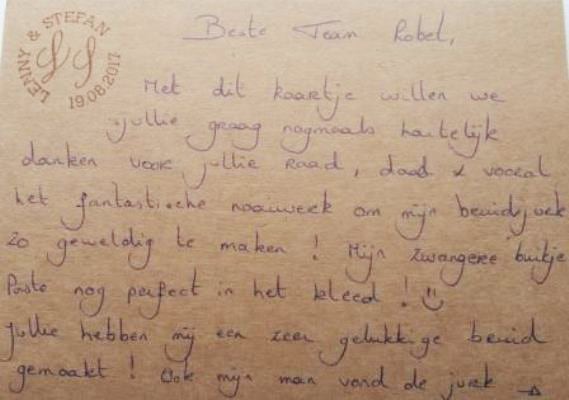 LENNY & STEFAN
19.08.2017
Beste Team Robel,
Met dit kaartje willen we
jullie graag nogmaals hartelijk
danken voor jullie raad, daad & vooral
het fantastische naaiwerk om mijn bruidsjurk
zo geweldig te maken! Mijn zwangere buikje
Paste nog perfect in het kleed! ☺
Jullie hebben mij een zeer gelukkige bruid
gemaakt! Ook mijn man vond de jurk →